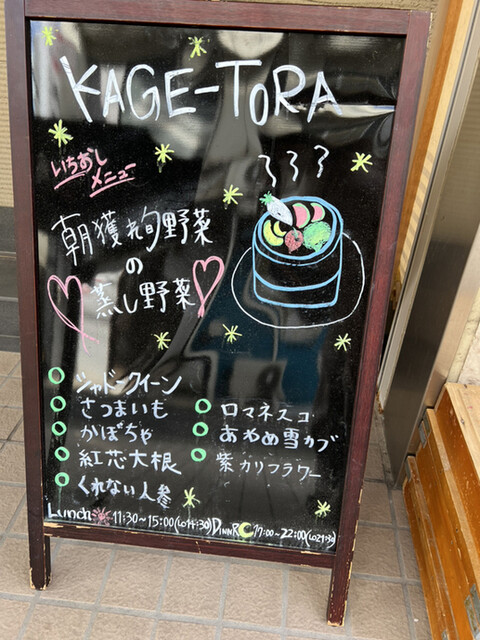 KAGE-TORA
いちおし
メニュー
朝獲れ旬野菜
の
蒸し野菜
シャドークイーン
さつまいも
かぼちゃ
紅芯大根
くれない人参
ロマネスコ
あやめ雪カブ
紫カリフラワー
Lunch 11:30~15:00(LO14:30) DINNR 17:00~22:00(LO21:30)